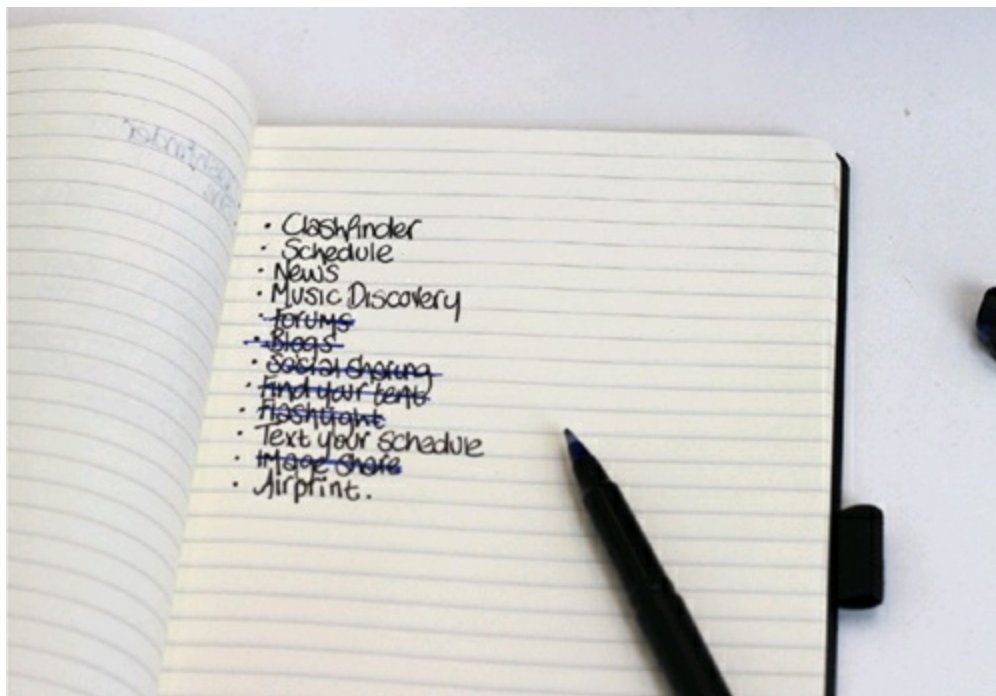 · Clashfinder
· Schedule
· News
· Music Discovery
· Forums
· Blogs
· Social sharing
· Find your tent
· Flashlight
· Text your schedule
· Image share
· Airprint.